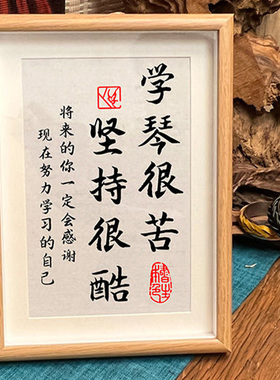 学琴很苦
坚持很酷
将来的你一定会感谢
现在努力学习的自己